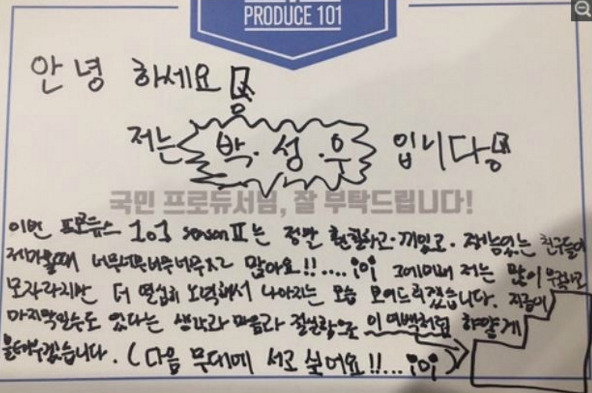 PRODUCE 101
안녕 하세요
저는 박.성.우 입니다
국민 프로듀서님, 잘 부탁드립니다!
이번 프로듀스 101 season II는 정말 훤칠하고.끼있고.재능있는 친구들이
너무너무너무너무 많아요!!.... 저는 많이
모자라지만 더 열심히 노력해서 나아지는 모습 보여드리겠습니다. 지금이
마지막일수도 있다는 생각과 마음과 절실함으로 이 여백처럼 하얗게
불태우겠습니다. (다음 무대에 서고 싶어요!!...